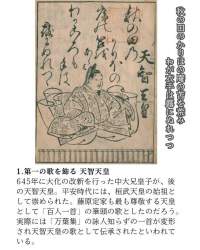 秋の田のかりほの庵の苫を荒み
わが衣手は露にぬれつつ
天智天皇
1.第一の歌を飾る 天智天皇
645年に大化の改新を行った中大兄皇子が、後
の天智天皇。平安時代には、桓武天皇の始祖と
して崇められた。藤原定家も最も尊敬する天皇
として「百人一首」の筆頭の歌としたのだろう。
実際には「万葉集」の詠人知らずの一首が変形
され天智天皇の歌として伝承されたといわれて
いる。